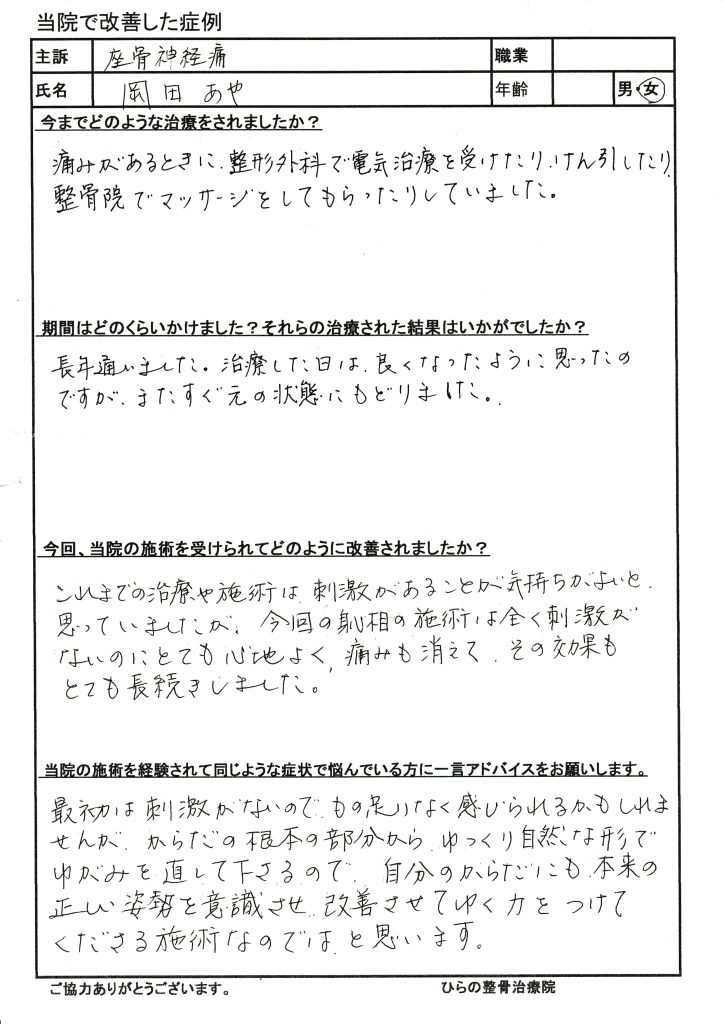 当院で改善した症例
主訴 座骨神経痛 職業
氏名 岡田 あや 年齢 男・女
今までどのような治療をされましたか？
痛みがあるときに、整形外科で電気治療を受けたり、けん引したり、
整骨院でマッサージをしてもらったりしていました。
期間はどのくらいかけました？それらの治療された結果はいかがでしたか？
長年通いました。治療した日は、良くなったように思ったの
ですが、またすぐ元の状態にもどりました。
今回、当院の施術を受けられてどのように改善されましたか？
これまでの治療や施術は、刺激があることが気持ちがよいと、
思っていましたが、今回の 相の施術は全く刺激が
ないのにとても心地よく、痛みも消えて、その効果も
とても長続きしました。
当院の施術を経験されて同じような症状で悩んでいる方に一言アドバイスをお願いします。
最初は刺激がないので、もの足りなく感じられるかもしれま
せんが、からだの根本の部分から、ゆっくり自然な形で
ゆがみを直して下さるので、自分のからだにも、本来の
正しい姿勢を意識させ、改善させてゆく力をつけて
くださる施術なのでは、と思います。
ご協力ありがとうございます。 ひらの整骨治療院